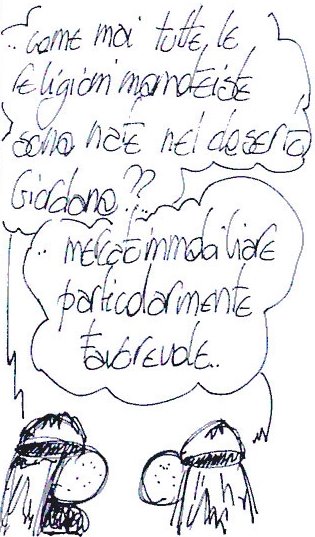 ..come mai tutte le
religioni monoteiste
sono nate nel deserto
Giordano??
..mercato immobiliare
particolarmente
favorevole..